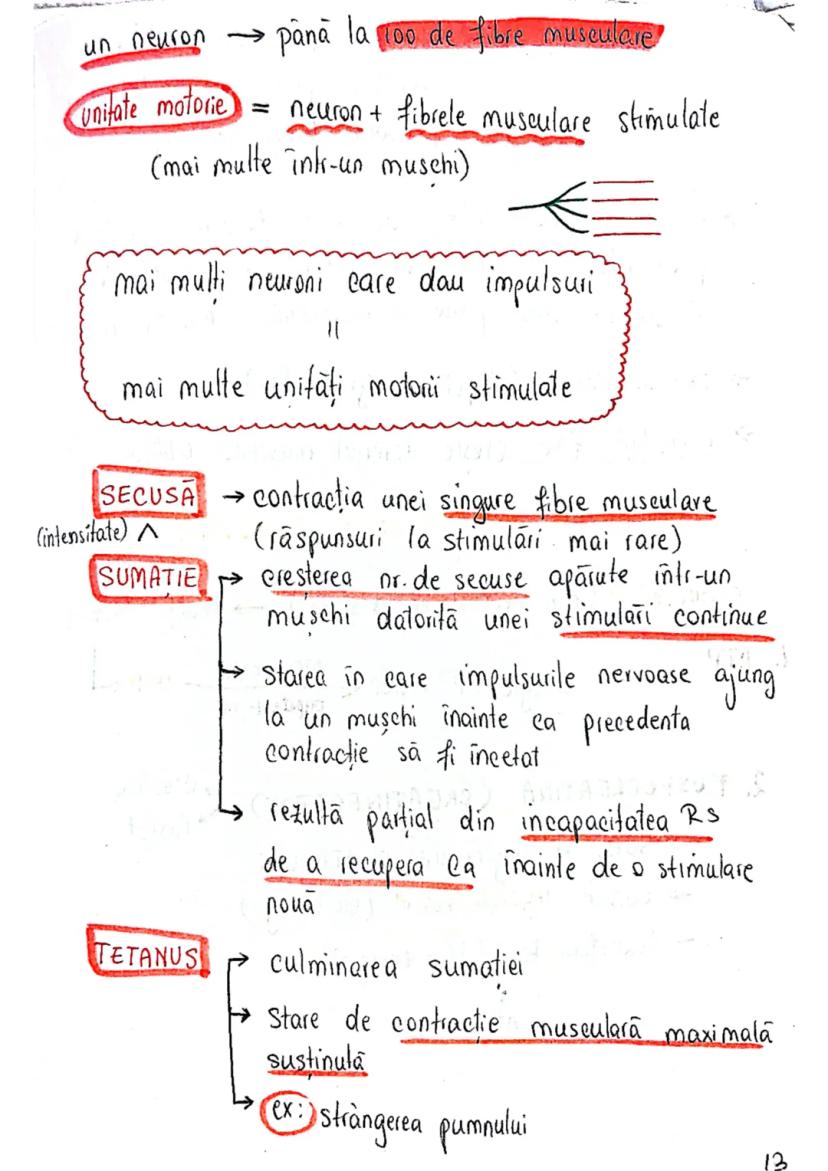 un neuron → până la 100 de fibre musculare
unitate motorie = neuron + fibrele musculare stimulate
(mai multe într-un mușchi)
mai mulți neuroni care dau impulsuri
=
mai multe unități motorii stimulate
SECUSĂ → contracția unei singure fibre musculare
(intensitate) ∧ (răspunsuri la stimulări mai rare)
SUMAȚIE → creșterea nr. de secuse apărute într-un
mușchi datorită unei stimulări continue
→ starea în care impulsurile nervoase ajung
la un mușchi înainte ca precedenta
contracție să fi încetat
→ rezultă parțial din incapacitatea RS
de a recupera Ca înainte de o stimulare
nouă
TETANUS → culminarea sumației
→ stare de contracție musculară maximală
susținută
→ ex: strângerea pumnului
13